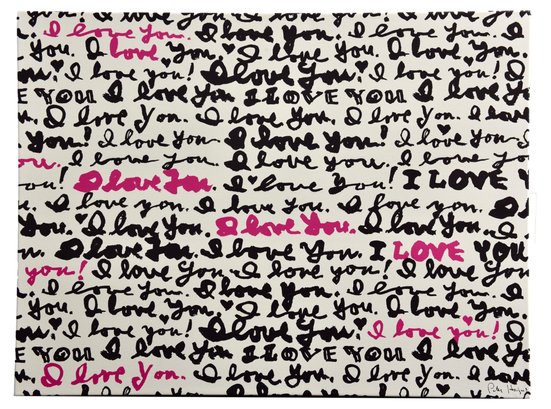 I love you. I love you. I love you.
You. I love You. ♥ I love You. I love You.
you. I love you! I love You. ♥ I love you!
E YOU I love You I LOVE YOU I love You
I love You. I love You. I love You.
You! I love You I love You! ♥ I love You
ou. I love you. I love you. I love you.
you! I love You. I love You! I LOVE Y
I love you. I love you. I love you.
You. I love You. I love You. I love You.
You. I love You. I love You. I LOVE YOU
you! I love You. I love You. I love you!
I love you. I love you. I love you.
You. I love You. ♥ I love You. I love You.
you. I love you! I love You. ♥ I love you!
E YOU I love You I LOVE YOU I love You
I love You. I love You. I love You.